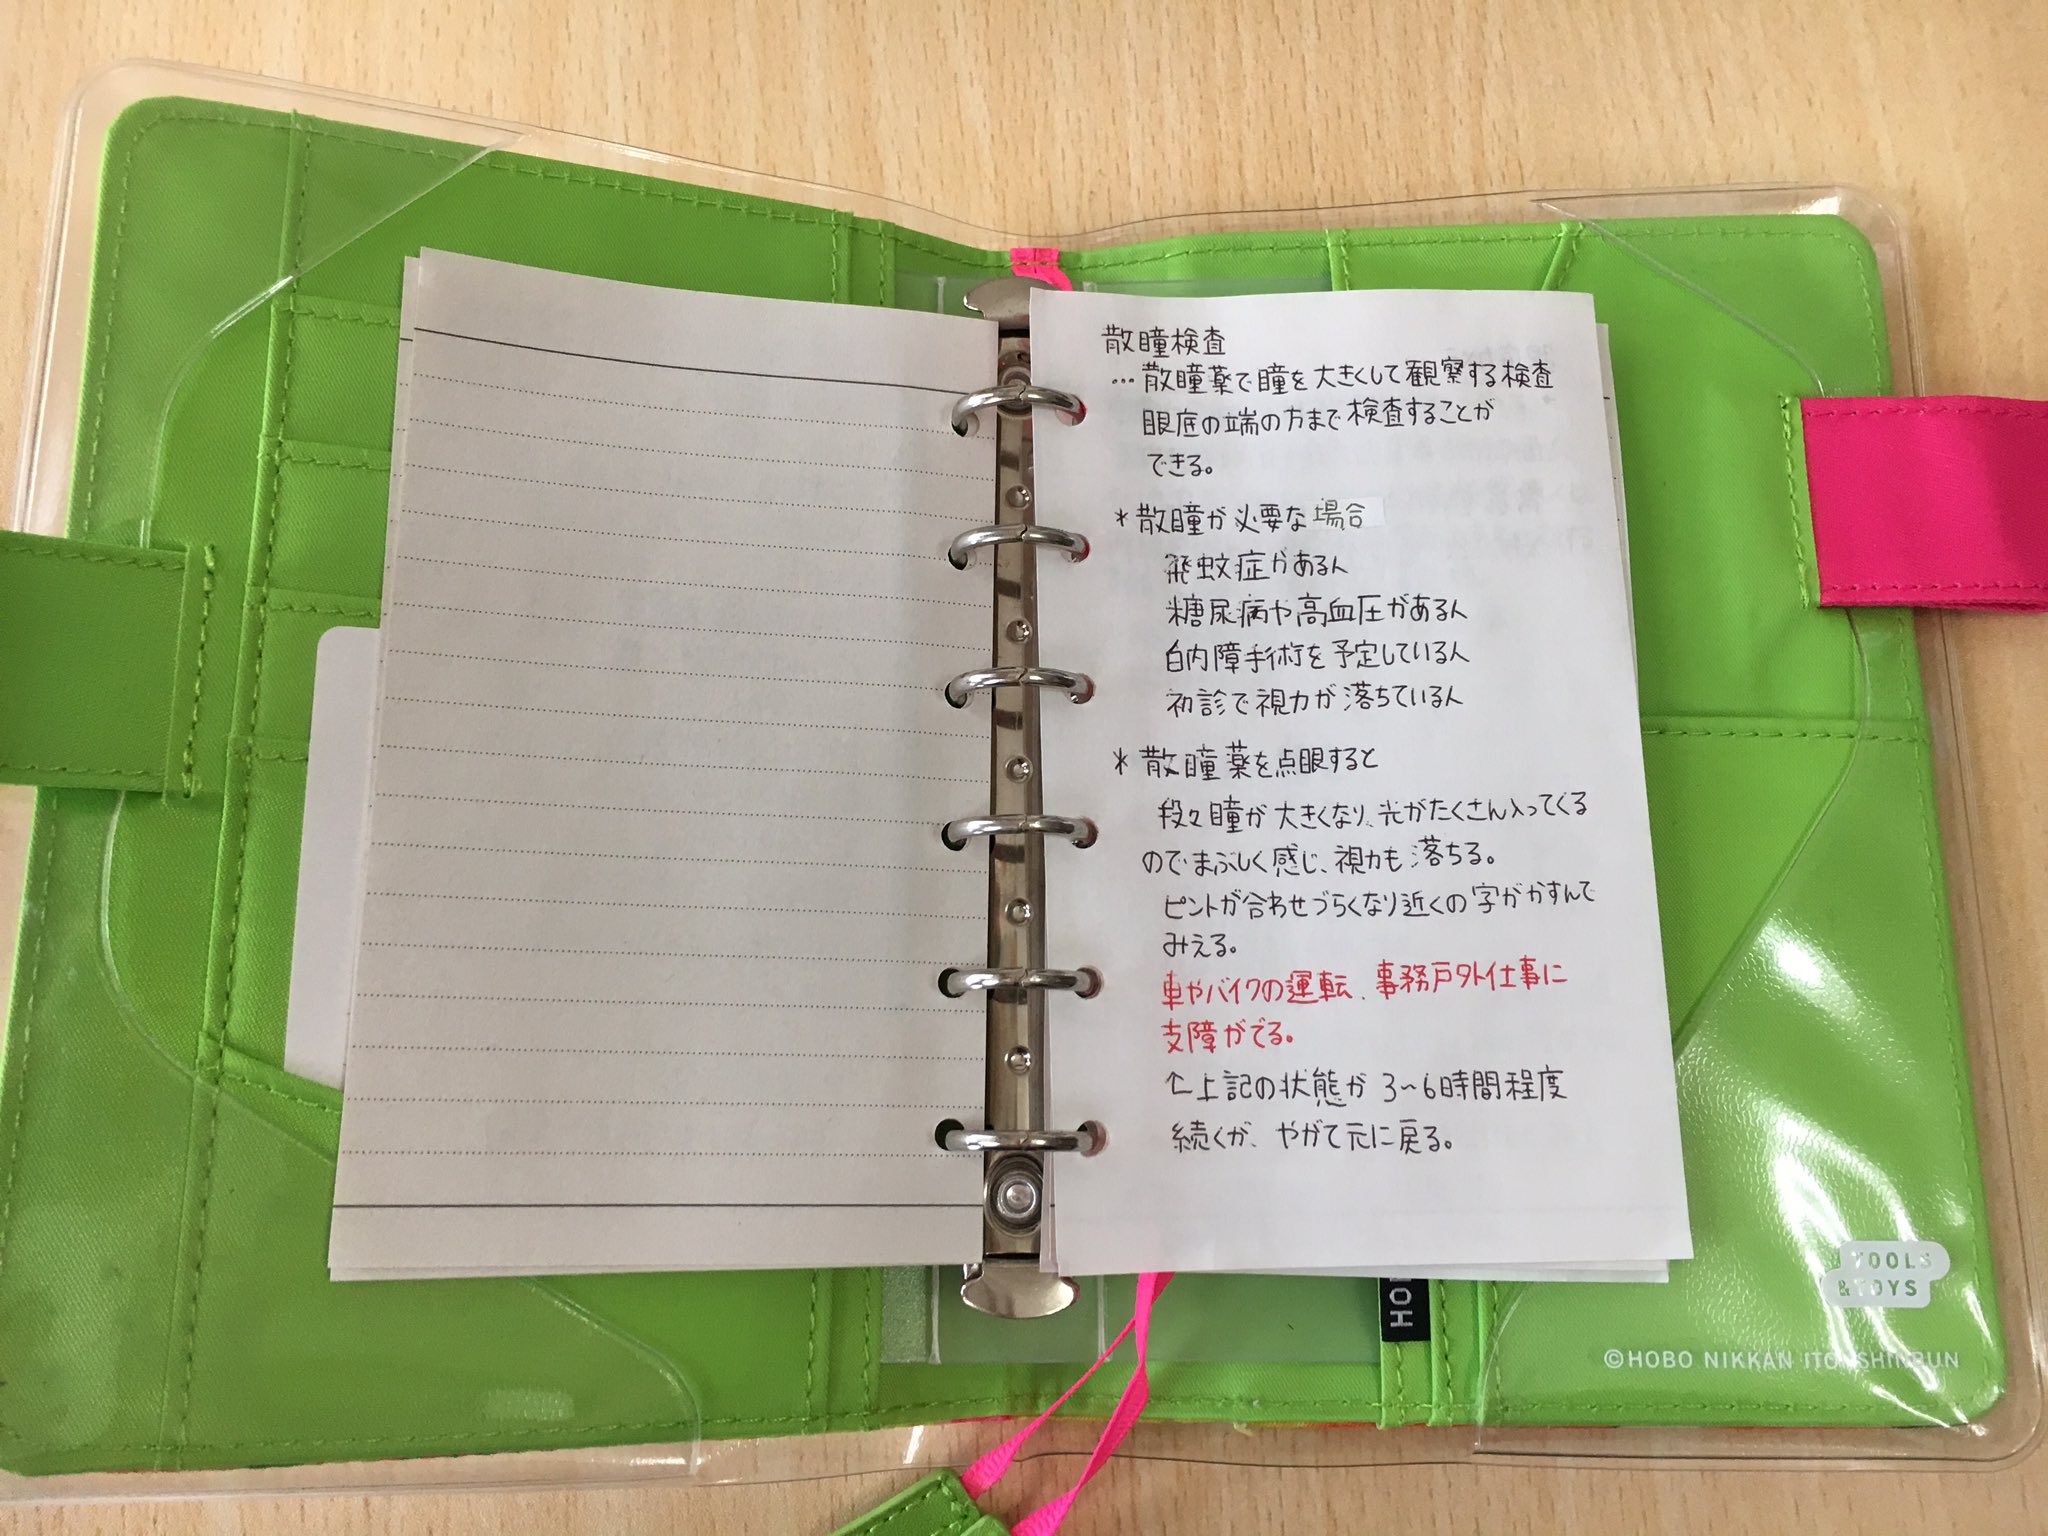 散瞳検査
…散瞳薬で瞳を大きくして観察する検査
眼底の端の方まで検査することが
できる。
*散瞳が必要な場合
飛蚊症がある人
糖尿病や高血圧がある人
白内障手術を予定している人
初診で視力が落ちている人
*散瞳薬を点眼すると
段々瞳が大きくなり、光がたくさん入ってくる
のでまぶしく感じ、視力も落ちる。
ピントが合わせづらくなり近くの字がかすんで
みえる。
車やバイクの運転、事務戸外仕事に
支障がでる。
↑上記の状態が3~6時間程度
続くが、やがて元に戻る。
TOOLS
&TOYS
HO
©HOBO NIKKAN ITOI SHINBUN